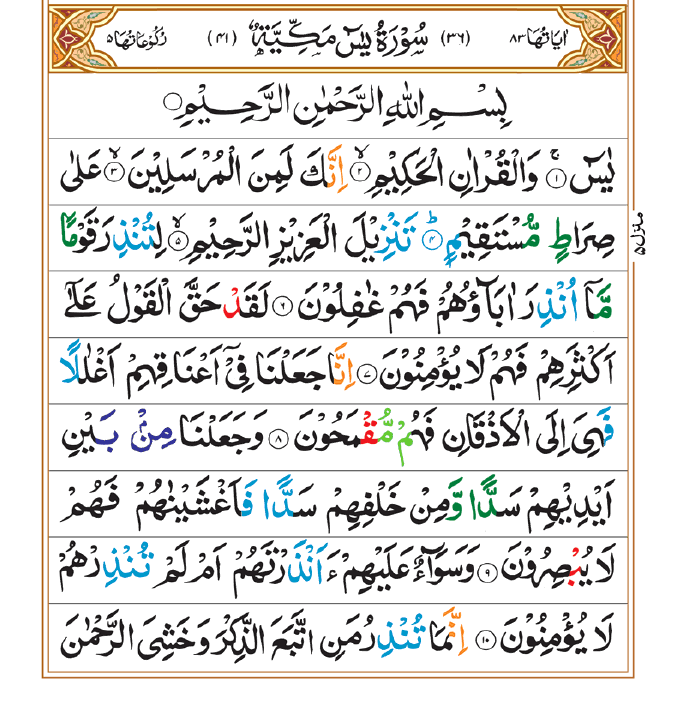 اٰيَاتُهَا ٨٣ (٣٦) سُوْرَةُ يٰسٓ مَكِّيَّةٌ (٤١) رُكُوْعَاتُهَا ٥
بِسْمِ اللهِ الرَّحْمٰنِ الرَّحِيْمِ
يٰسٓ ۚ﴿١﴾ وَالْقُرْاٰنِ الْحَكِيْمِ ۙ﴿٢﴾ اِنَّكَ لَمِنَ الْمُرْسَلِيْنَ ۙ﴿٣﴾ عَلٰى
صِرَاطٍ مُّسْتَقِيْمٍ ؕ﴿٤﴾ تَنْزِيْلَ الْعَزِيْزِ الرَّحِيْمِ ۙ﴿٥﴾ لِتُنْذِرَ قَوْمًا
مَّاۤ اُنْذِرَ اٰبَآؤُهُمْ فَهُمْ غٰفِلُوْنَ ﴿٦﴾ لَقَدْ حَقَّ الْقَوْلُ عَلٰۤى
اَكْثَرِهِمْ فَهُمْ لَا يُؤْمِنُوْنَ ﴿٧﴾ اِنَّا جَعَلْنَا فِيْۤ اَعْنَاقِهِمْ اَغْلٰلًا
فَهِيَ اِلَى الْاَذْقَانِ فَهُمْ مُّقْمَحُوْنَ ﴿٨﴾ وَجَعَلْنَا مِنْۢ بَيْنِ
اَيْدِيْهِمْ سَدًّا وَّمِنْ خَلْفِهِمْ سَدًّا فَاَغْشَيْنٰهُمْ فَهُمْ
لَا يُبْصِرُوْنَ ﴿٩﴾ وَسَوَآءٌ عَلَيْهِمْ ءَاَنْذَرْتَهُمْ اَمْ لَمْ تُنْذِرْهُمْ
لَا يُؤْمِنُوْنَ ﴿١٠﴾ اِنَّمَا تُنْذِرُ مَنِ اتَّبَعَ الذِّكْرَ وَخَشِيَ الرَّحْمٰنَ
منزل ٥